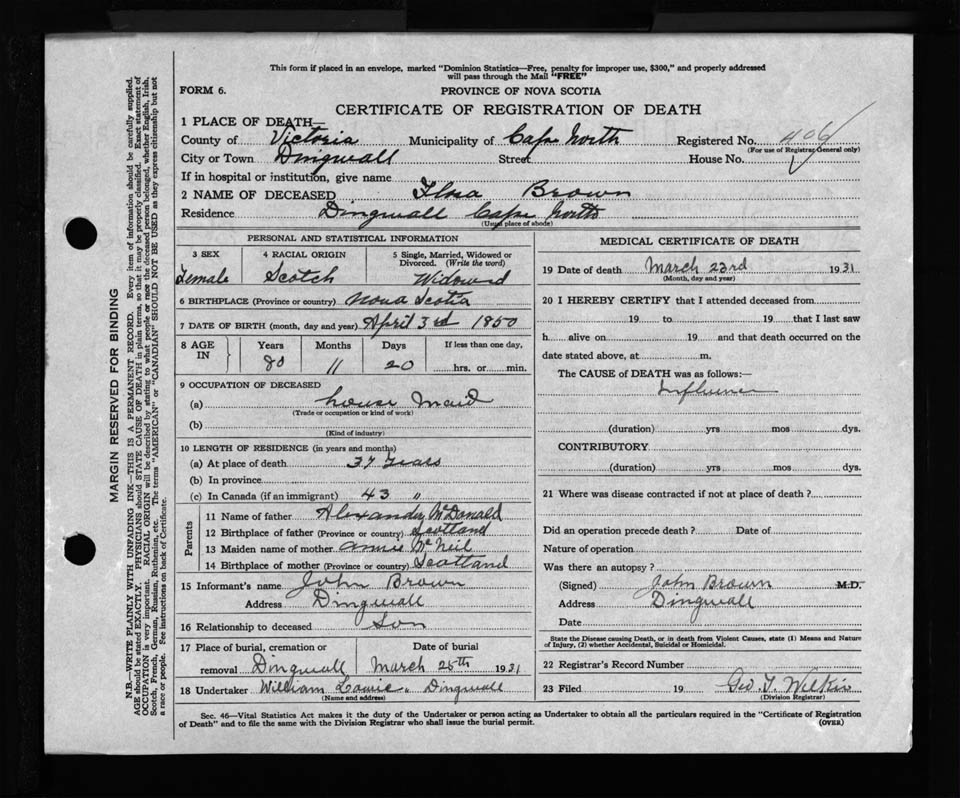 This form if placed in an envelope, marked "Dominion Statistics—Free, penalty for improper use, $300," and properly addressed
will pass through the Mail "FREE"
FORM 6.
PROVINCE OF NOVA SCOTIA
CERTIFICATE OF REGISTRATION OF DEATH
1 PLACE OF DEATH—
County of Victoria Municipality of Cape North Registered No. 406
(For use of Registrar General only)
City or Town Dingwall Street House No.
If in hospital or institution, give name
2 NAME OF DECEASED Brown
Residence Dingwall Cape North
(Usual place of abode)
PERSONAL AND STATISTICAL INFORMATION
3 SEX 4 RACIAL ORIGIN 5 Single, Married, Widowed or Divorced. (Write the word)
Female Scotch Widowed
6 BIRTHPLACE (Province or country) Nova Scotia
7 DATE OF BIRTH (month, day and year) April 3rd 1850
8 AGE IN Years Months Days If less than one day,
80 11 20 hrs. or min.
9 OCCUPATION OF DECEASED
(a) house Maid
(Trade or occupation or kind of work)
(b)
(Kind of industry)
10 LENGTH OF RESIDENCE (in years and months)
(a) At place of death 37 Years
(b) In province
(c) In Canada (if an immigrant) 43 "
Parents
11 Name of father Alexander McDonald
12 Birthplace of father (Province or country) Scotland
13 Maiden name of mother Annie McNeil
14 Birthplace of mother (Province or country) Scotland
15 Informant's name John Brown
Address Dingwall
16 Relationship to deceased Son
17 Place of burial, cremation or removal Date of burial
Dingwall March 25th 1931
18 Undertaker William Dingwall
(Name and address)
MEDICAL CERTIFICATE OF DEATH
19 Date of death March 23rd 1931
(Month, day and year)
20 I HEREBY CERTIFY that I attended deceased from
19 to 19 that I last saw
h alive on 19 and that death occurred on the
date stated above, at m.
The CAUSE of DEATH was as follows:—
(duration) yrs mos dys.
CONTRIBUTORY
(duration) yrs mos dys.
21 Where was disease contracted if not at place of death?
Did an operation precede death? Date of
Nature of operation
Was there an autopsy?
(Signed) John Brown M.D.
Address Dingwall
Date
State the Disease causing Death, or in death from Violent Causes, state (1) Means and Nature
of Injury, (2) whether Accidental, Suicidal or Homicidal.
22 Registrar's Record Number
23 Filed 19 Geo. T. Wilkie
(Division Registrar)
Sec. 46—Vital Statistics Act makes it the duty of the Undertaker or person acting as Undertaker to obtain all the particulars required in the "Certificate of Registration
of Death" and to file the same with the Division Registrar who shall issue the burial permit.
(OVER)
MARGIN RESERVED FOR BINDING
N.B.—WRITE PLAINLY WITH UNFADING INK—THIS IS A PERMANENT RECORD. Every item of information should be carefully supplied.
AGE should be stated EXACTLY. PHYSICIANS should STATE CAUSE OF DEATH in plain terms, so that it may be properly classified. Exact statement of
OCCUPATION is very important. RACIAL ORIGIN will be described by stating to what people or race the deceased person belonged, whether English, Irish,
Scotch, French, German, Russian, Ruthenian, etc. The terms "AMERICAN" or "CANADIAN" SHOULD NOT BE USED as they express citizenship but not
a race or people. See instructions on back of Certificate.